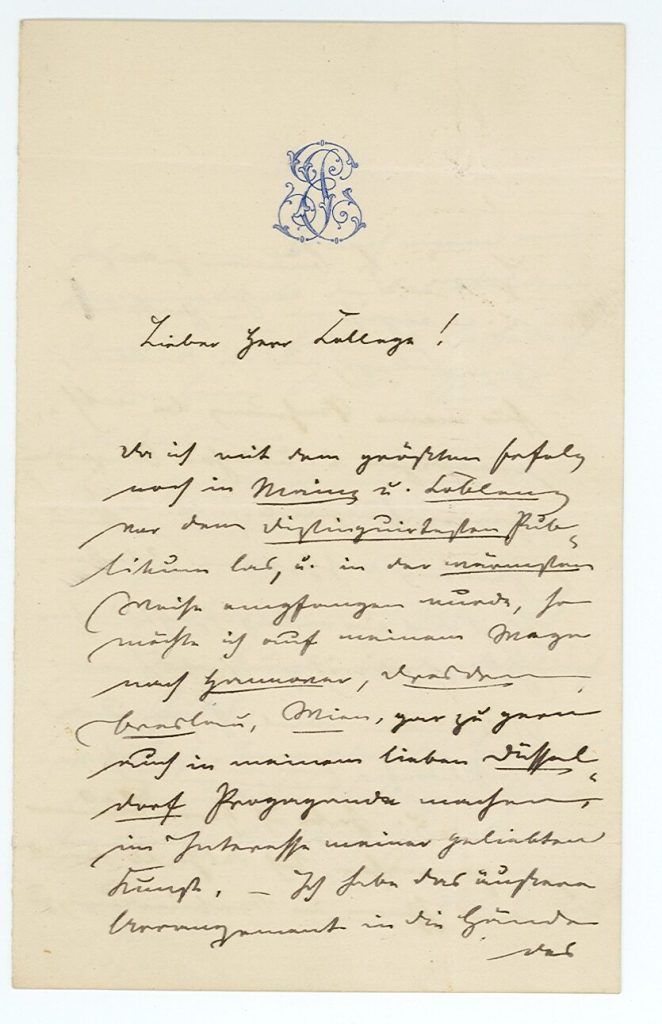 Lieber Herr College!
Da ich mit dem größten Erfolg
noch in Mainz u. Coblenz
vor dem distinguirtesten Pub-
likum las, u. in der wärmsten
Weise empfangen wurde, so
möchte ich auf meinem Wege
nach Hannover, Dresden,
Breslau, Wien, gar zu gern
auch in meinem lieben Düssel-
dorf Propaganda machen,
im Interesse meiner geliebten
Kunst. — Ich habe das äußere
Arrangement in die Hände
des